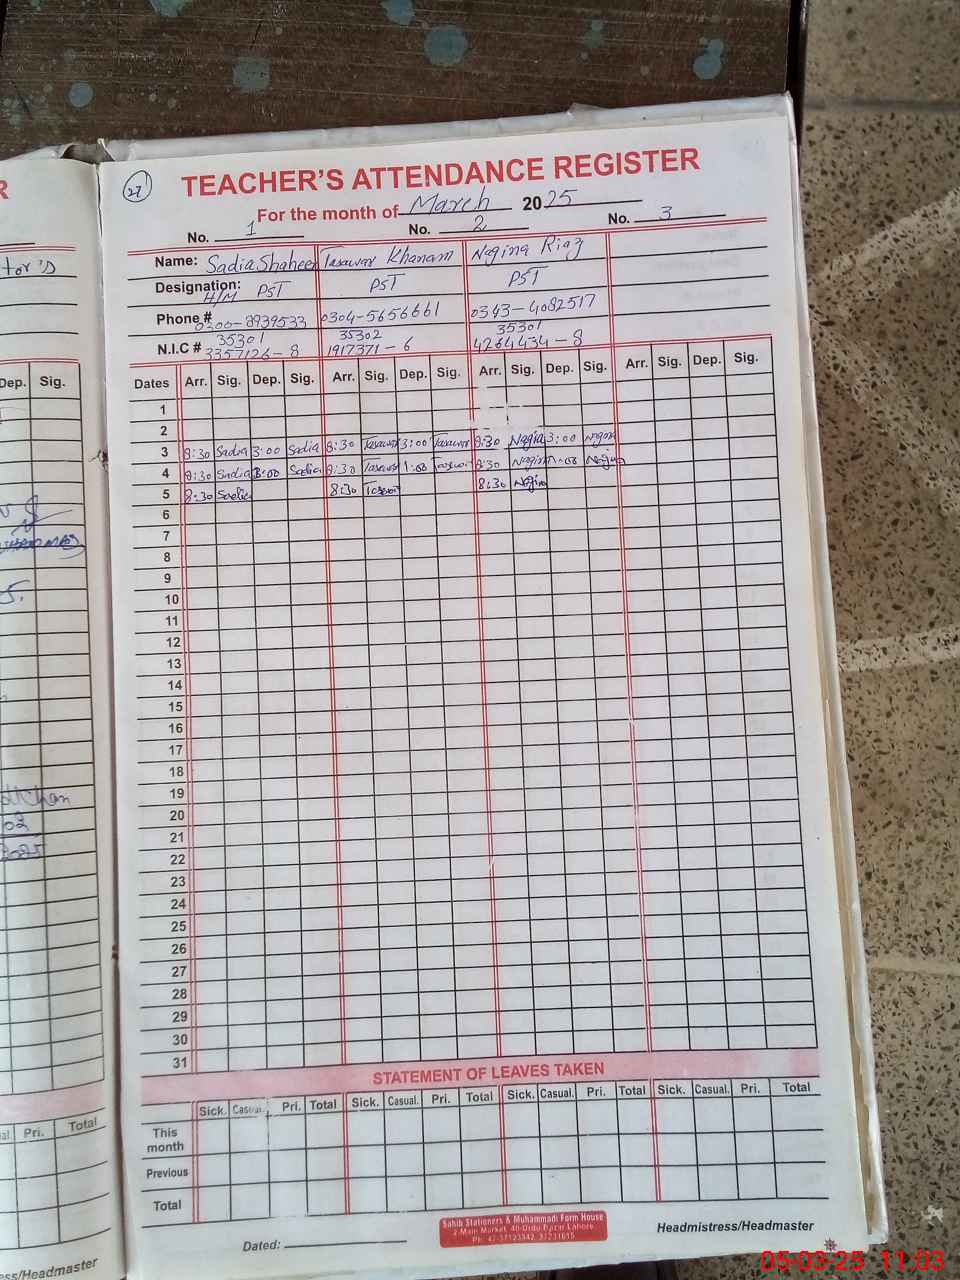 27
TEACHER'S ATTENDANCE REGISTER
For the month of March 2025
No. 1 No. 2 No. 3
Name: Sadia Shaheen Tasawar Khanam Nagina Riaz
Designation: H/M PST PST PST
Phone # 0300-8939533 0304-5656661 0343-4082517
35301 35302 35301
N.I.C # 3357126-8 1917371-6 4264434-8
Dates Arr. Sig. Dep. Sig. Arr. Sig. Dep. Sig. Arr. Sig. Dep. Sig. Arr. Sig. Dep. Sig.
1
2
3 8:30 Sadia 3:00 Sadia 8:30 Tasawar 3:00 Tasawar 8:30 Nagina 3:00 Nagina
4 8:30 Sadia 3:00 Sadia 8:30 Tasawar 1:00 Tasawar 8:30 Nagina 1:00 Nagina
5 8:30 Sadia 8:30 Tasawar 8:30 Nagina
6
7
8
9
10
11
12
13
14
15
16
17
18
19
20
21
22
23
24
25
26
27
28
29
30
31
STATEMENT OF LEAVES TAKEN
Sick. Casual. Pri. Total Sick. Casual. Pri. Total Sick. Casual. Pri. Total Sick. Casual. Pri. Total
This month
Previous
Total
Sahib Stationers & Muhammadi Form House
2-Main Market, 40-Urdu Bazar Lahore.
Ph: 42-37123342, 37231615
Dated: Headmistress/Headmaster
R
tor's
Dep. Sig.
Khan
02
Pri. Total
ss/Headmaster
05-03-25 11:03